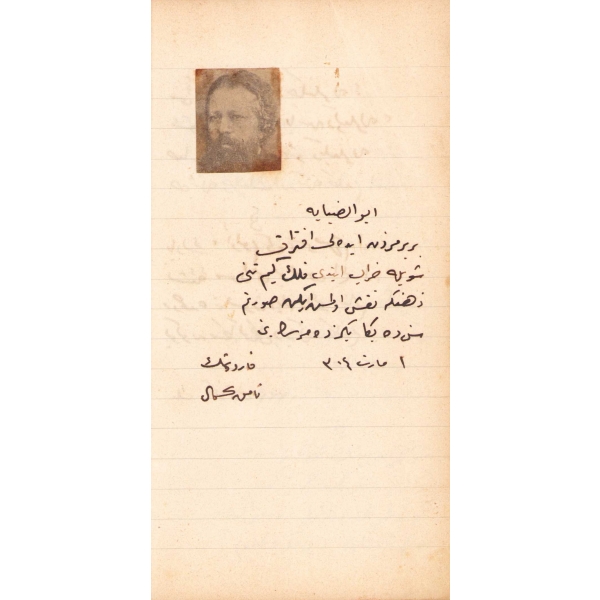 ابو الضیایه
بربرمزدن ایده لی افتراق
شویله خراب ایتدی فلك كیم تنی
ذهنكه نقش اولمسه ایكن صورتم
سن ده بكا بكزده مزسك بنی
١ مارت ٣٠٤
قارداشك
نامق كمال